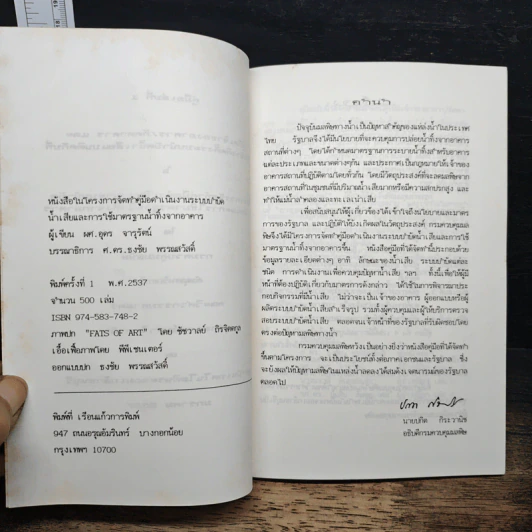 หนังสือในโครงการจัดทำคู่มือดำเนินงานระบบบำบัด
น้ำเสียและการใช้มาตรฐานน้ำทิ้งจากอาคาร
ผู้เขียน ผศ.สุดา จารุรัตน์
บรรณาธิการ ศ.ดร.ธงชัย พรรณสวัสดิ์
พิมพ์ครั้งที่ 1 พ.ศ.2537
จำนวน 500 เล่ม
ISBN 974-583-748-2
ภาพปก "FATS OF ART" โดย ชัชวาลย์
เอื้อเฟื้อภาพโดย พีพีเซนเตอร์
ออกแบบปก ธงชัย พรรณสวัสดิ์
พิมพ์ที่ เรือนแก้วการพิมพ์
947 ถนนอรุณอัมรินทร์ บางกอกน้อย
กรุงเทพฯ 10700
คำนำ
ปัจจุบันมลพิษทางน้ำเป็นปัญหาสำคัญของแหล่งน้ำในประเทศ
ไทย รัฐบาลจึงได้มีนโยบายที่จะควบคุมการปล่อยน้ำทิ้งจากอาคาร
สถานที่ต่างๆ โดยได้กำหนดมาตรฐานการระบายน้ำทิ้งสำหรับอาคาร
แต่ละประเภทและขนาดต่างๆกัน และประกาศเป็นกฎหมายให้เจ้าของ
อาคารสถานที่ปฏิบัติตามโดยทั่วกัน โดยมีวัตถุประสงค์ที่จะลดมลพิษจาก
อาคารสถานที่ในชุมชนที่มีปริมาณน้ำเสียมากหรือมีความสกปรกสูง และ
ทำให้แม่น้ำลำคลองและทะเลเน่าเสีย
เพื่อสนับสนุนให้ผู้เกี่ยวข้องได้เข้าใจถึงนโยบายและมาตร
การของรัฐบาล และปฏิบัติให้บังเกิดผลในวัตถุประสงค์ กรมควบคุม
มลพิษจึงได้มีโครงการจัดทำคู่มือดำเนินงานระบบบำบัดน้ำเสียและการใช้
มาตรฐานน้ำทิ้งจากอาคารขึ้น หนังสือคู่มือที่ได้จัดทำนี้ประกอบด้วย
ข้อมูลรายละเอียดต่างๆ อาทิ ลักษณะของน้ำเสีย ระบบบำบัดแต่ละ
ชนิด การดำเนินงานเพื่อควบคุมปัญหาน้ำเสีย ฯลฯ ทั้งนี้เพื่อให้ผู้มี
หน้าที่ต้องปฏิบัติเกี่ยวกับมาตรการดังกล่าว ได้ใช้ในการพิจารณาประ
กอบกิจกรรมที่มีน้ำเสีย ไม่ว่าจะเป็น เจ้าของอาคาร ผู้ออกแบบหรือผู้
ผลิตระบบบำบัดน้ำเสียสำเร็จรูป รวมทั้งผู้ควบคุมและผู้ให้บริการตรวจ
สอบระบบบำบัดน้ำเสีย ตลอดจนเจ้าหน้าที่ของรัฐบาลที่รับผิดชอบโดย
ตรงต่อปัญหามลพิษทางน้ำ
กรมควบคุมมลพิษหวังเป็นอย่างยิ่งว่าหนังสือคู่มือที่ได้จัดทำ
ขึ้นตามโครงการ จะเป็นประโยชน์ทั้งต่อภาคเอกชนและรัฐบาล ซึ่ง
จะยังผลให้ปัญหามลพิษในแหล่งน้ำลดลงได้สมดังเจตนารมณ์ของรัฐบาล
ตลอดไป
นายปกิต กิระวานิช
อธิบดีกรมควบคุมมลพิษ